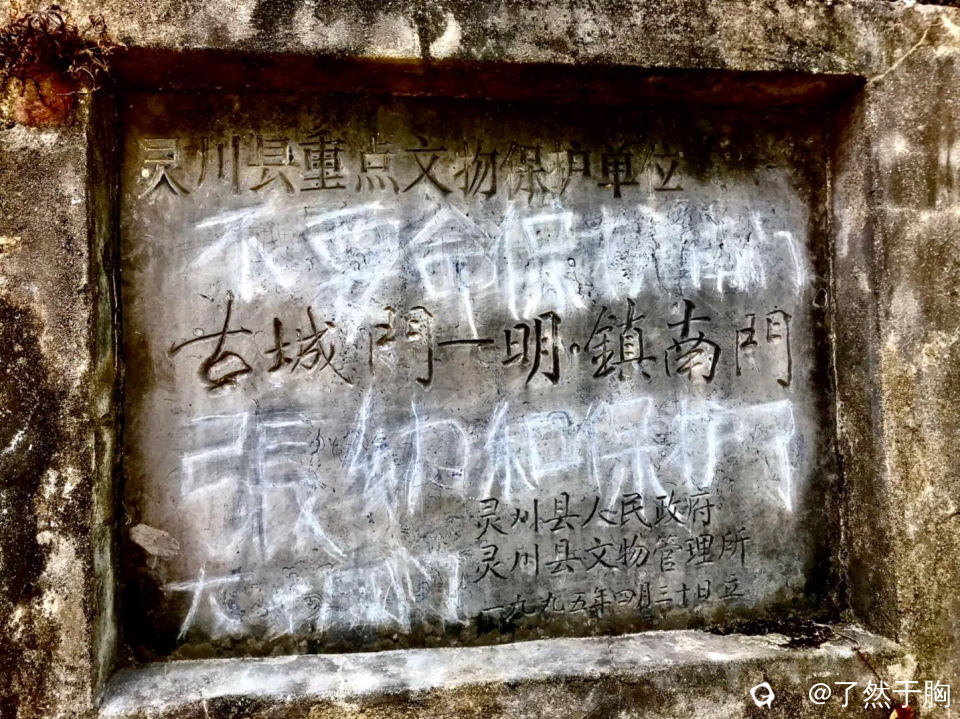 灵川县重点文物保护单位
不要命保护
古城門一明·鎮南門
張和保护了
灵川县人民政府
灵川县文物管理所
一九九五年四月三十日立
大们
@了然于胸